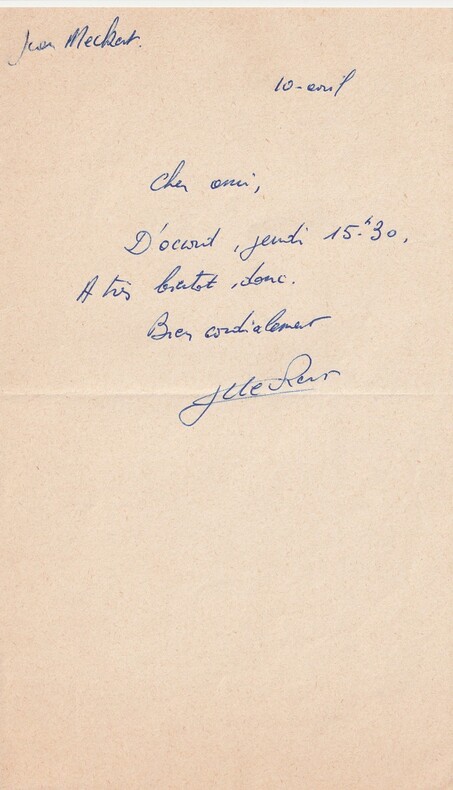 Jean Meckert.
10 - avril
Cher ami,
D'accord, jeudi 15.h30,
A très bientôt, donc.
Bien cordialement
JMeckert